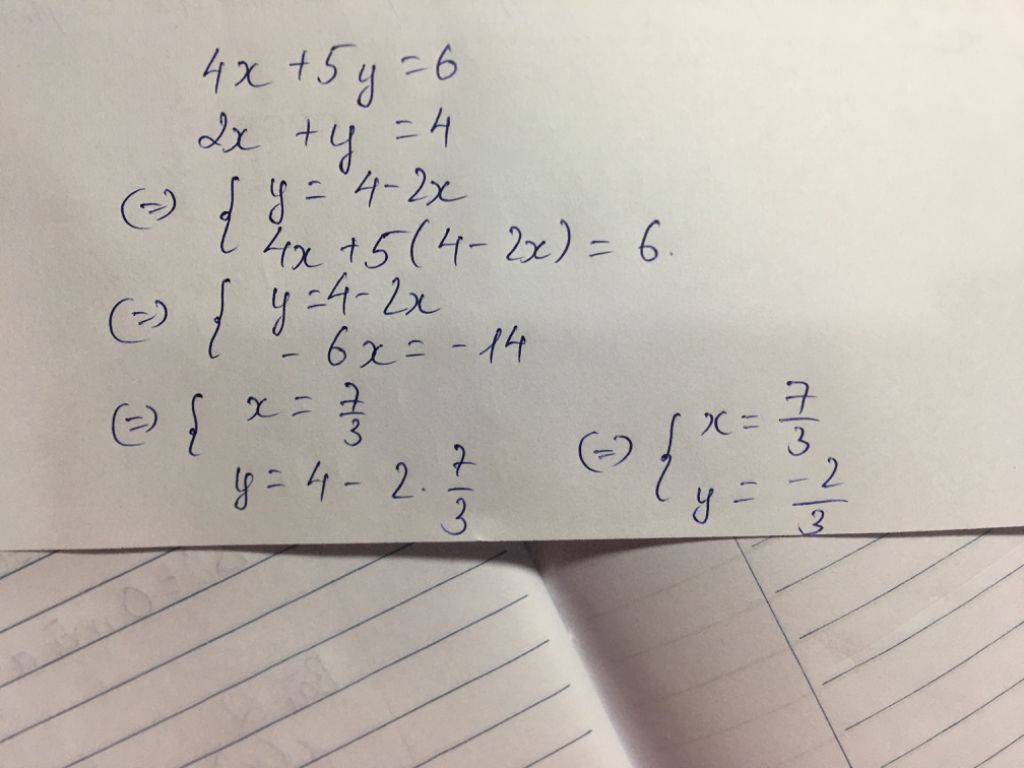 4x + 5y = 6
2x + y = 4
(=) { y = 4 - 2x
4x + 5(4 - 2x) = 6.
(=) { y = 4 - 2x
- 6x = -14
(=) { x = 7/3
y = 4 - 2. 7/3
(=) { x = 7/3
y = -2/3